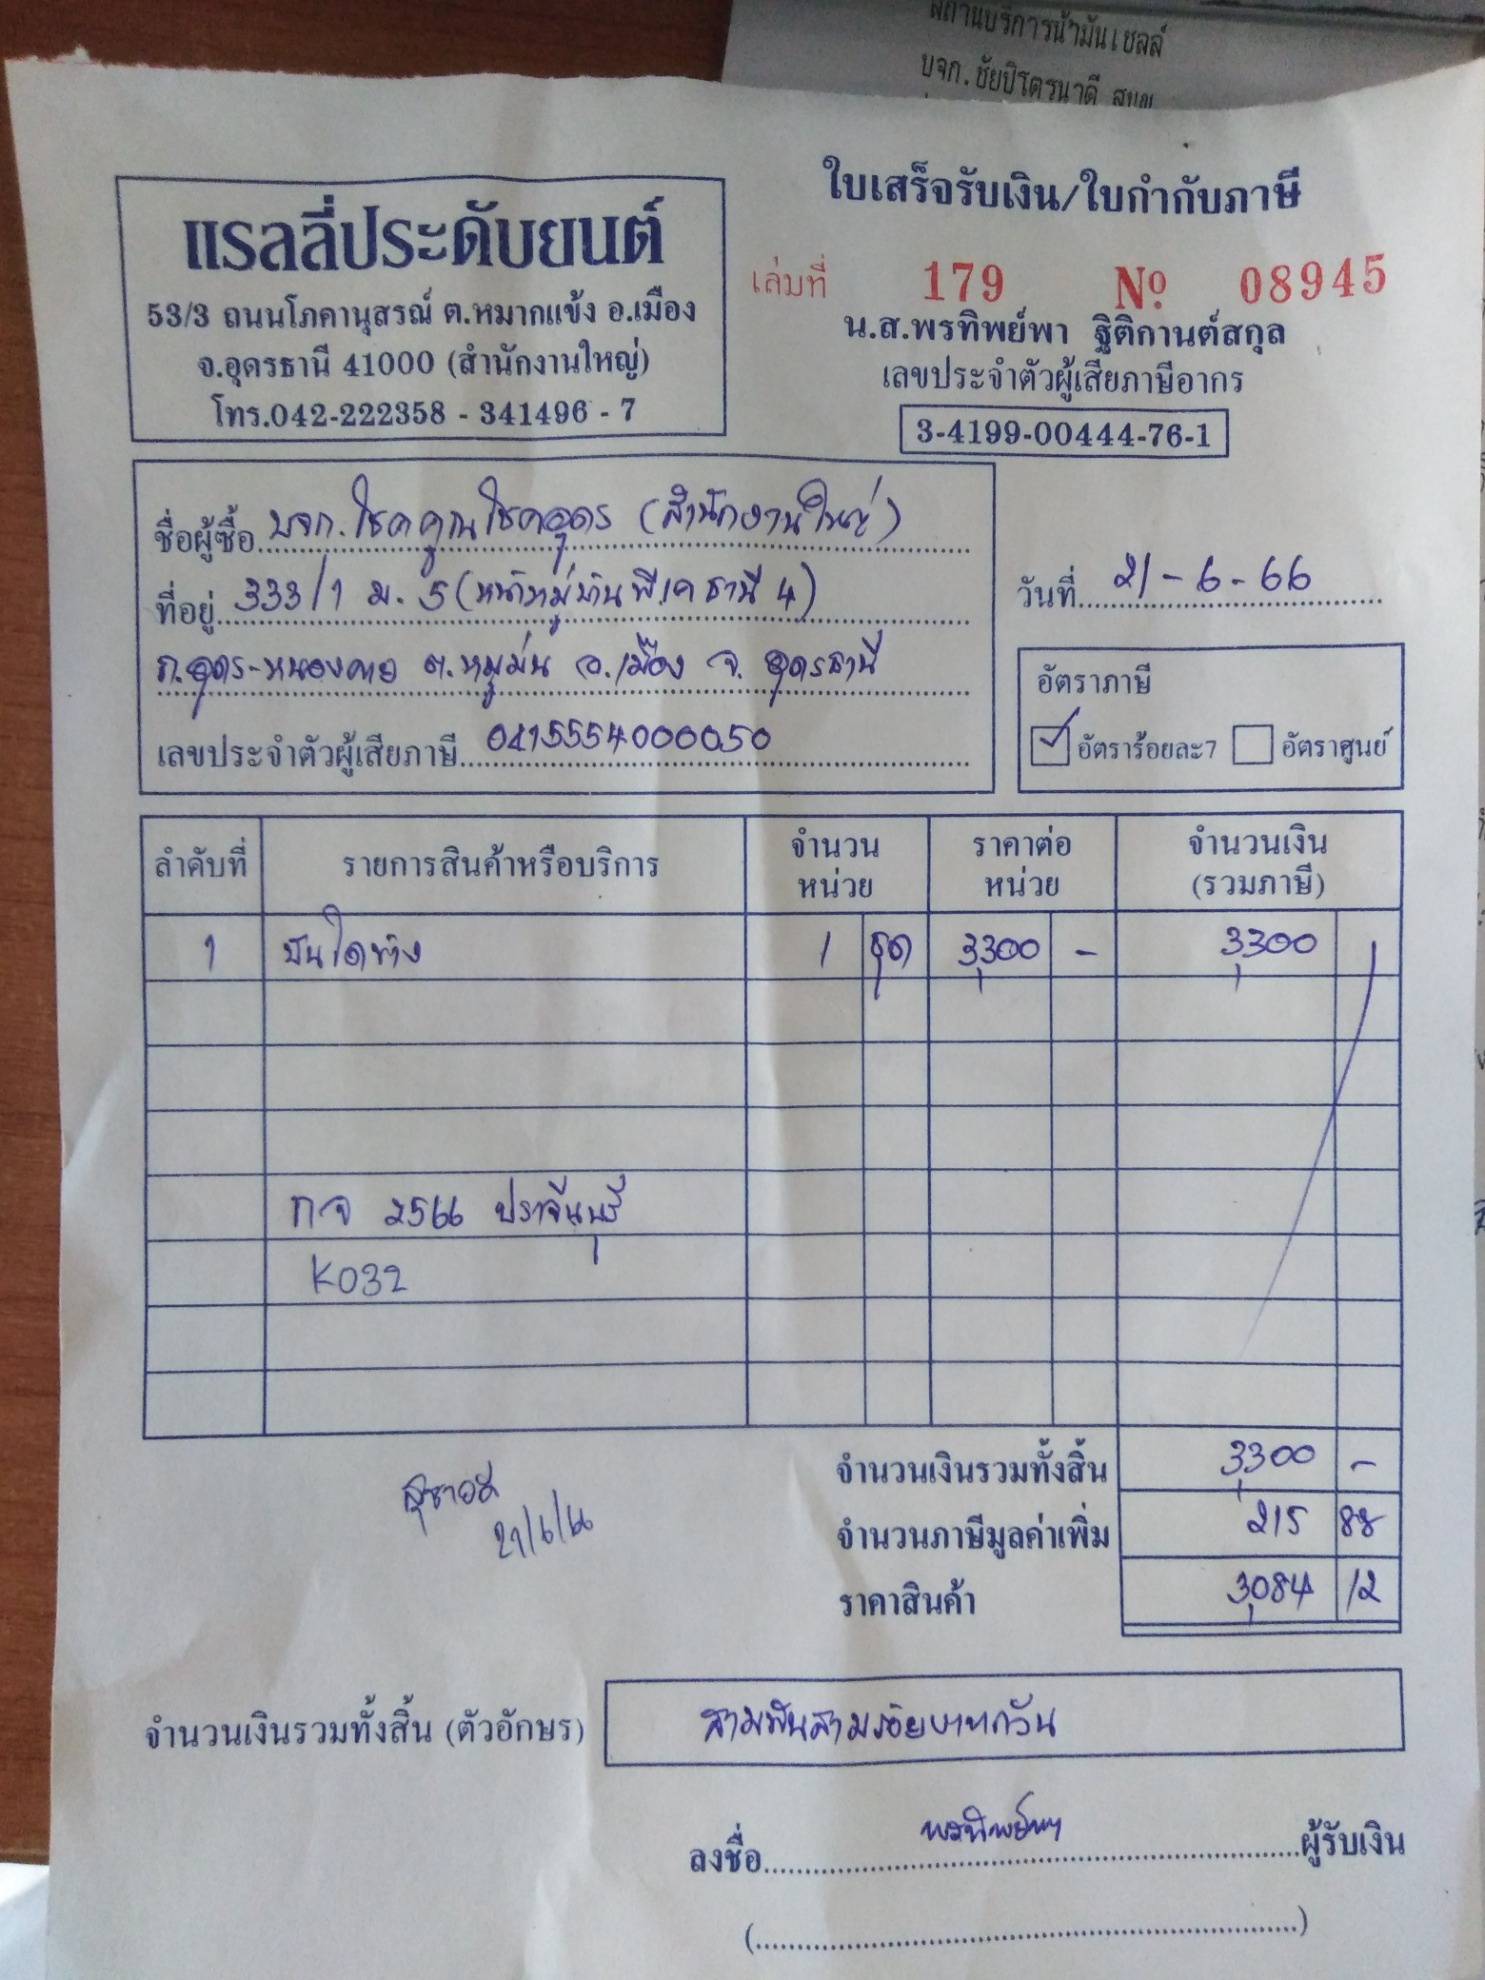 สถานบริการน้ำมันเชลล์
บจก.ชัยปิโตรนาดี
ใบเสร็จรับเงิน/ใบกำกับภาษี
แรลลี่ประดับยนต์
53/3 ถนนโภคานุสรณ์ ต.หมากแข้ง อ.เมือง
จ.อุดรธานี 41000 (สำนักงานใหญ่)
โทร.042-222358 - 341496 - 7
เล่มที่ 179 Nº 08945
น.ส.พรทิพย์พา ฐิติกานต์สกุล
เลขประจำตัวผู้เสียภาษีอากร
3-4199-00444-76-1
ชื่อผู้ซื้อ บจก.โชคคูณโชคอุดร (สำนักงานใหญ่)
ที่อยู่ 333/1 ม.5 (หน้าหมู่บ้านพีเคธานี 4)
ถ.อุดร-หนองคาย ต.หมูม่น อ.เมือง จ.อุดรธานี
เลขประจำตัวผู้เสียภาษี 0415554000050
วันที่ 21-6-66
อัตราภาษี
อัตราร้อยละ7 อัตราศูนย์
ลำดับที่ รายการสินค้าหรือบริการ จำนวนหน่วย ราคาต่อหน่วย จำนวนเงิน (รวมภาษี)
1 บันไดข้าง 1 ชุด 3,300 - 3,300
กจ 2566 ปราจีนบุรี
K032
จำนวนเงินรวมทั้งสิ้น 3,300 -
จำนวนภาษีมูลค่าเพิ่ม 215 88
ราคาสินค้า 3,084 12
21/6/66
จำนวนเงินรวมทั้งสิ้น (ตัวอักษร) สามพันสามร้อยบาทถ้วน
ลงชื่อ พรทิพย์พา ผู้รับเงิน